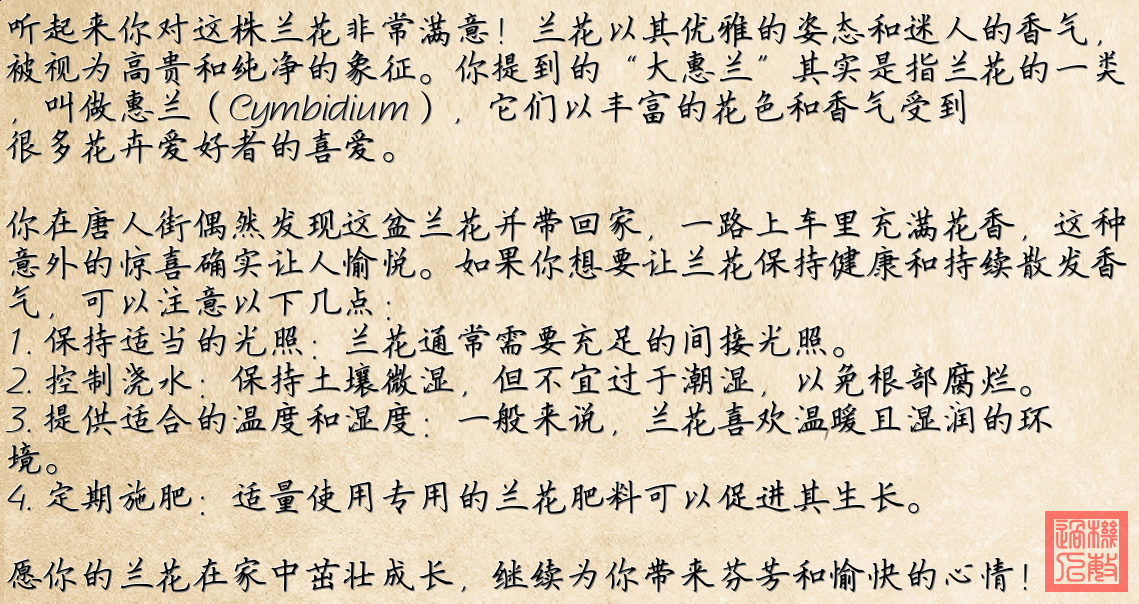 听起来你对这株兰花非常满意！兰花以其优雅的姿态和迷人的香气，
被视为高贵和纯净的象征。你提到的“大惠兰”其实是指兰花的一类
，叫做惠兰（Cymbidium），它们以丰富的花色和香气受到
很多花卉爱好者的喜爱。
你在唐人街偶然发现这盆兰花并带回家，一路上车里充满花香，这种
意外的惊喜确实让人愉悦。如果你想要让兰花保持健康和持续散发香
气，可以注意以下几点：
1. 保持适当的光照：兰花通常需要充足的间接光照。
2. 控制浇水：保持土壤微湿，但不宜过于潮湿，以免根部腐烂。
3. 提供适合的温度和湿度：一般来说，兰花喜欢温暖且湿润的环
境。
4. 定期施肥：适量使用专用的兰花肥料可以促进其生长。
愿你的兰花在家中茁壮成长，继续为你带来芬芳和愉快的心情！